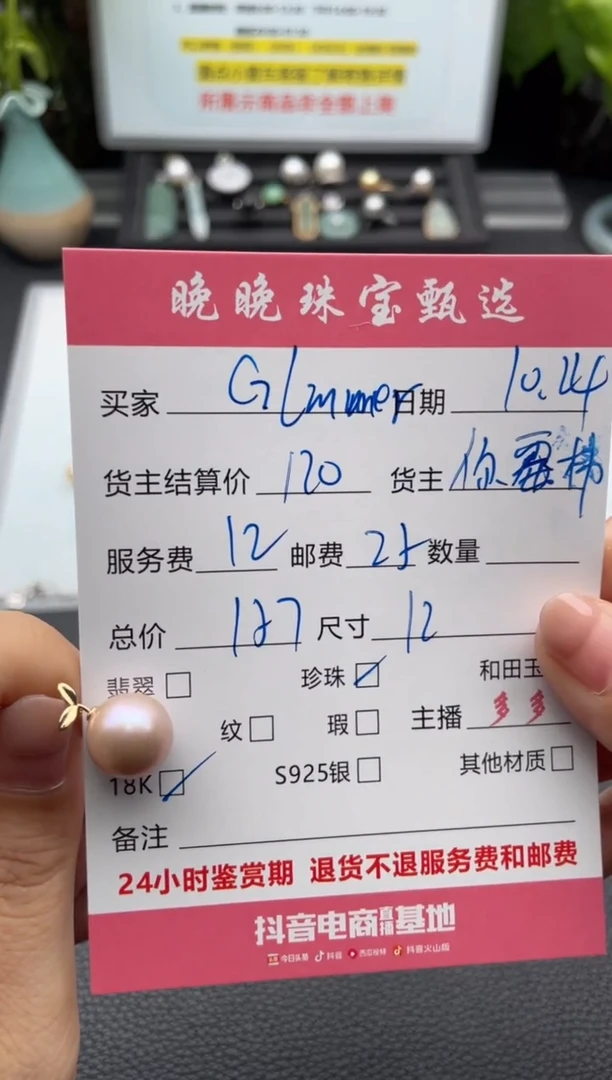 晚晚珠宝甄选
买家 Glimmer 日期 10.24
货主结算价 120 货主
服务费 12 邮费 25 数量
总价 157 尺寸 12
翡翠 珍珠 和田玉
纹 瑕 主播 多多
18K S925银 其他材质
备注
24小时鉴赏期 退货不退服务费和邮费
抖音电商直播基地
今日头条 抖音 西瓜视频 抖音火山版